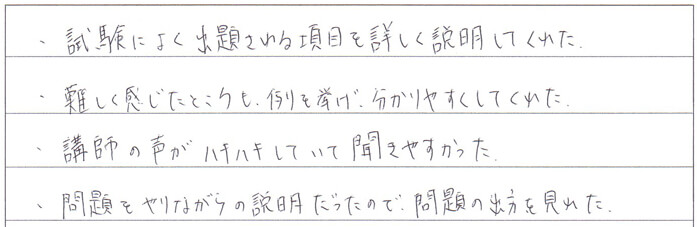 ・試験によく出題される項目を詳しく説明してくれた.
・難しく感じたところも、例を挙げ、分かりやすくしてくれた.
・講師の声がハキハキしていて聞きやすかった.
・問題をやりながらの説明だったので、問題の出方を見れた.